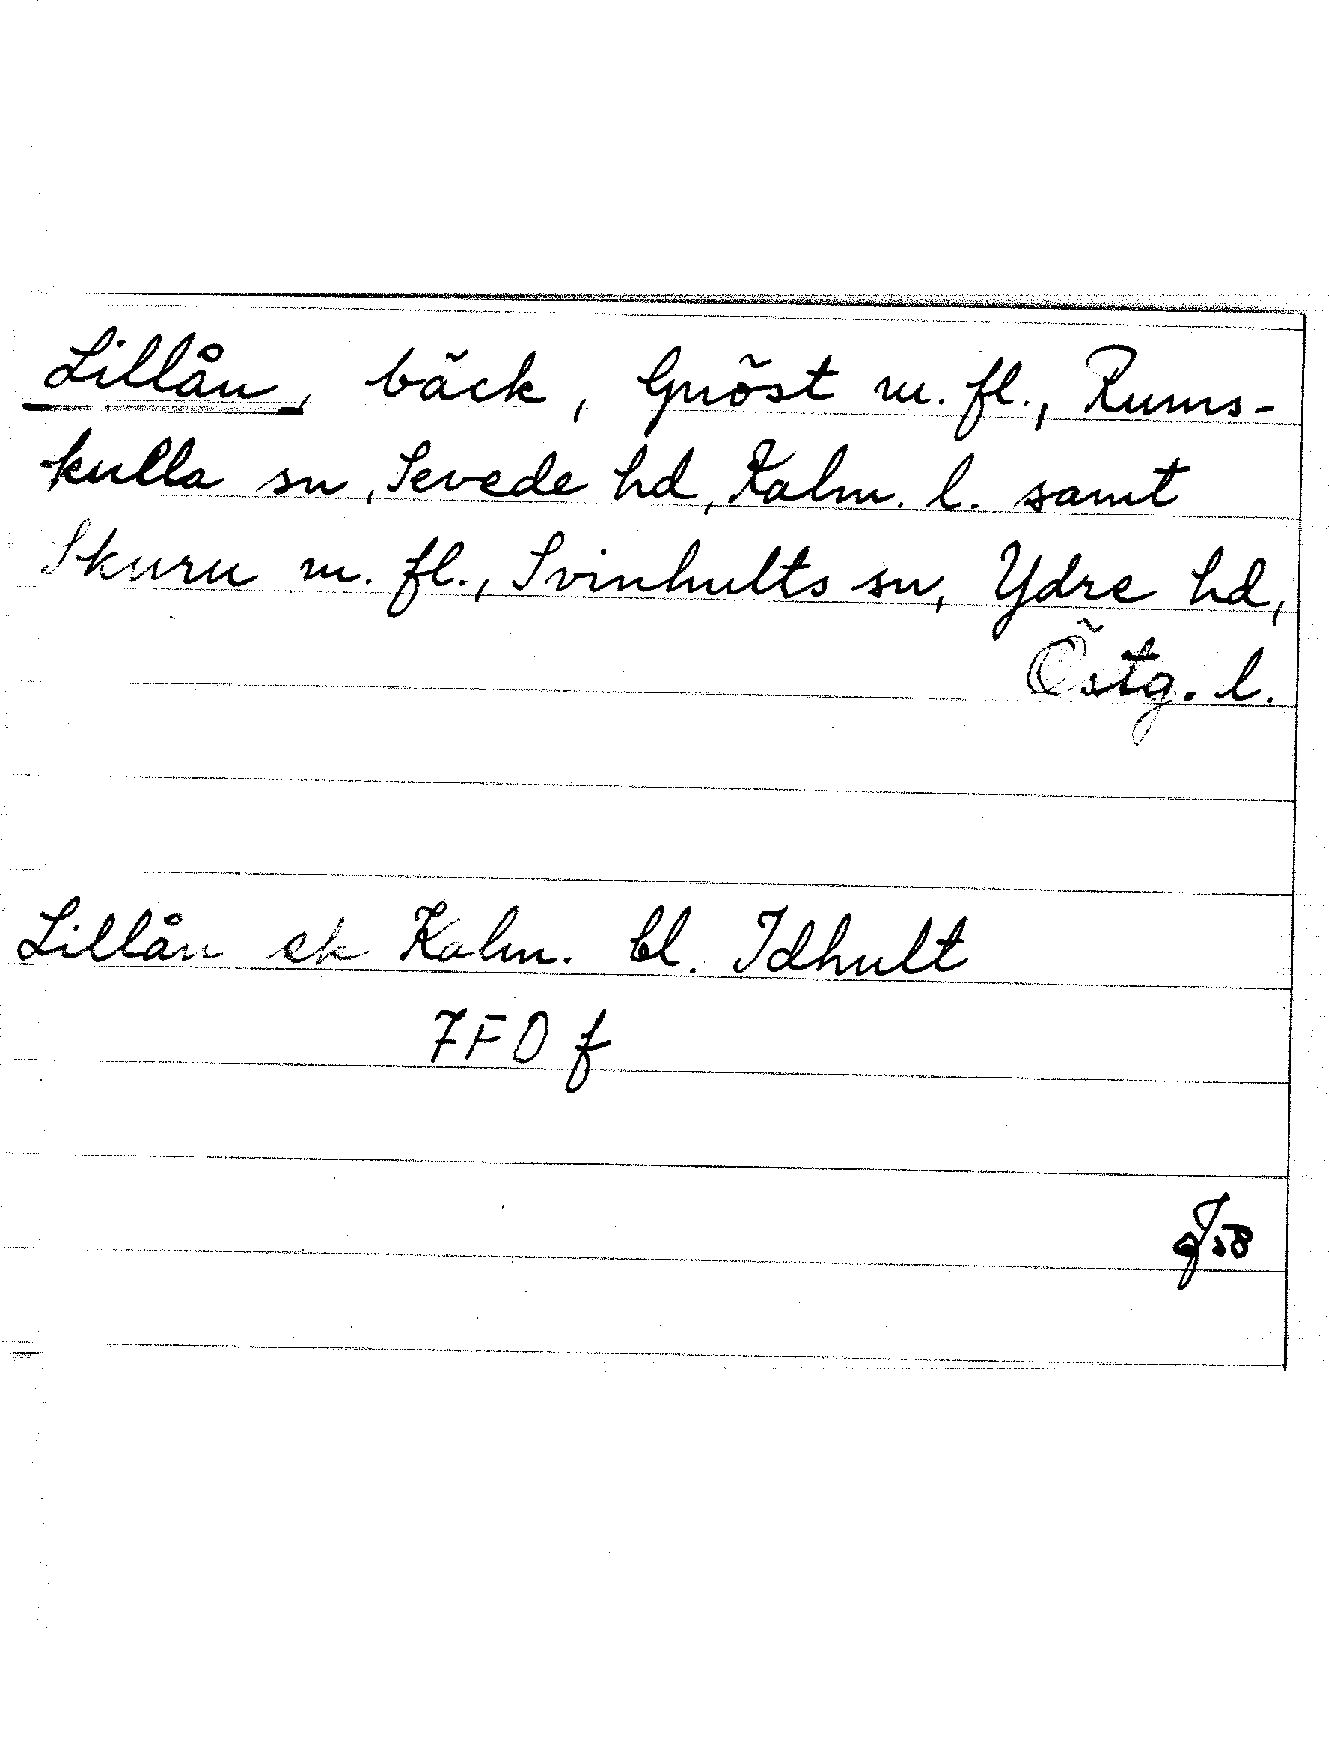 Lillån, bäck, Gnöst m. fl., Rums-
kulla sn, Sevede hd, Kalm. l. samt
Skuru m. fl., Svinhults sn, Ydre hd,
Östg. l.
Lillån ek Kalm. bl. Idhult
7F0 f